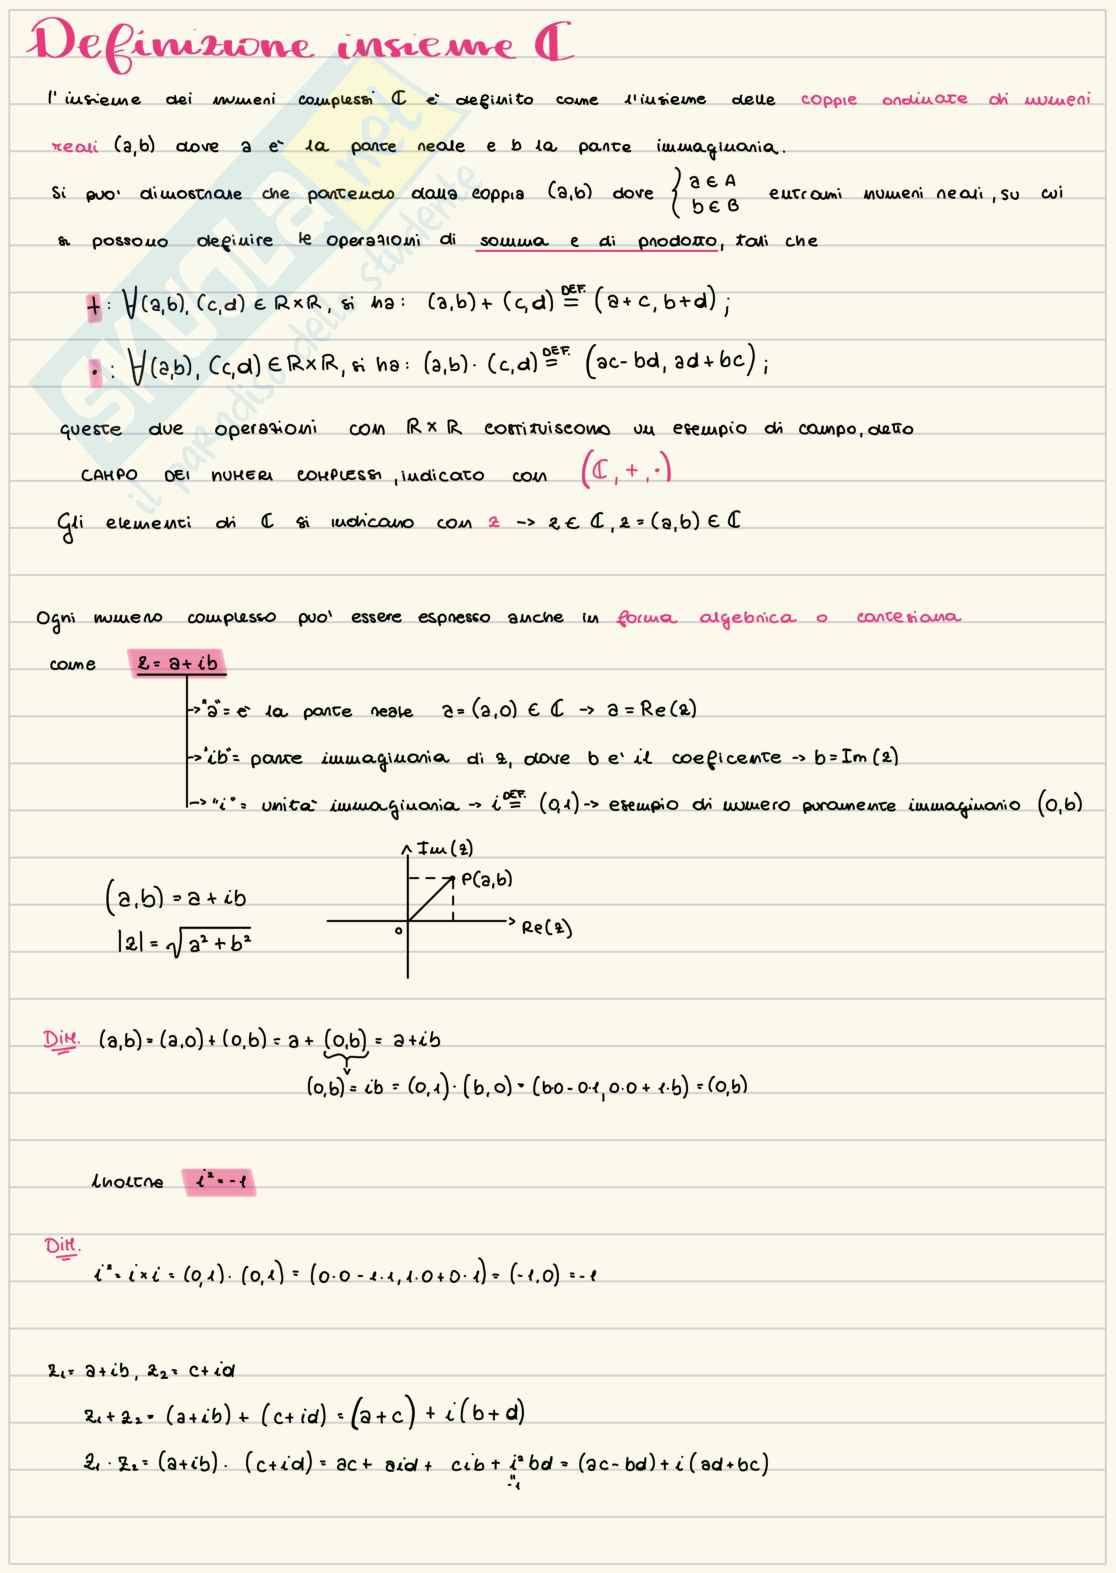 Definizione insieme ℂ
l'insieme dei numeri complessi ℂ è definito come l'insieme delle coppie ordinate di numeri
reali (a,b) dove a è la parte reale e b la parte immaginaria.
Si puo' dimostrare che partendo dalla coppia (a,b) dove { a ∈ A b ∈ B entrami numeri reali, su cui
si possono definire le operazioni di somma e di prodotto, tali che
+ : ∀(a,b), (c,d) ∈ R×R, si ha: (a,b) + (c,d) =DEF. (a+c, b+d) ;
• : ∀(a,b), (c,d) ∈ R×R, si ha: (a,b) · (c,d) =DEF. (ac-bd, ad+bc) ;
queste due operazioni con R×R costituiscono un esempio di campo, detto
CAMPO DEI NUMERI COMPLESSI, indicato con (ℂ, +, ·)
Gli elementi di ℂ si indicano con z -> z ∈ ℂ, z = (a,b) ∈ ℂ
Ogni numero complesso puo' essere espresso anche in forma algebrica o cartesiana
come z = a+ib
->"a"= è la parte reale a = (a,0) ∈ ℂ -> a = Re(z)
->"ib"= parte immaginaria di z, dove b e' il coeficente -> b = Im(z)
->"i"= unità immaginaria -> i =DEF. (0,1) -> esempio di numero puramente immaginario (0,b)
Im(z)
P(a,b)
(a,b) = a + ib
o
Re(z)
|z| = √a² + b²
DIM. (a,b) = (a,0) + (0,b) = a + (0,b) = a+ib
(0,b) = ib = (0,1) · (b,0) = (b·0 - 0·1, 0·0 + 1·b) = (0,b)
Inoltre i² = -1
DIM.
i² = i×i = (0,1) · (0,1) = (0·0 - 1·1, 1·0 + 0·1) = (-1,0) = -1
z₁ = a+ib, z₂ = c+id
z₁+z₂ = (a+ib) + (c+id) = (a+c) + i(b+d)
z₁·z₂ = (a+ib) · (c+id) = ac + aid + cib + i²bd = (ac-bd) + i(ad+bc)
"-1
SKUOLA.net
il paradiso dello studente